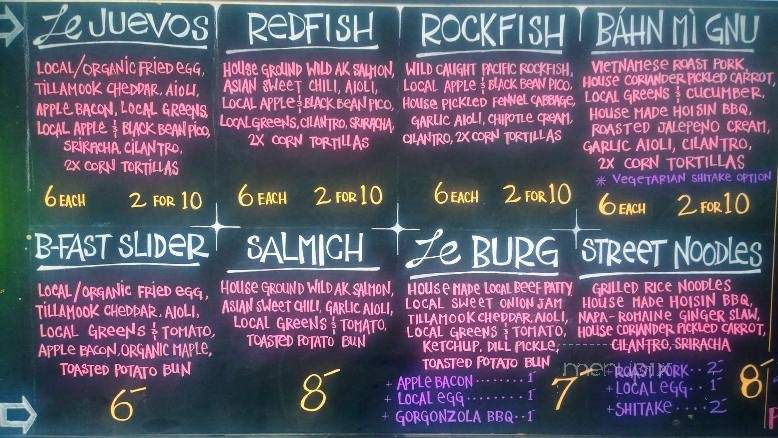 Le JUEVOS
LOCAL/ORGANIC FRIED EGG,
TILLAMOOK CHEDDAR, AIOLI,
APPLE BACON, LOCAL GREENS,
LOCAL APPLE & BLACK BEAN PICO,
SRIRACHA, CILANTRO,
2X CORN TORTILLAS
6 EACH 2 FOR 10
REDFISH
HOUSE GROUND WILD AK SALMON,
ASIAN SWEET CHILI, AIOLI,
LOCAL APPLE & BLACK BEAN PICO,
LOCAL GREENS, CILANTRO, SRIRACHA,
2X CORN TORTILLAS
6 EACH 2 FOR 10
ROCKFISH
WILD CAUGHT PACIFIC ROCKFISH,
LOCAL APPLE & BLACK BEAN PICO,
HOUSE PICKLED FENNEL CABBAGE,
GARLIC AIOLI, CHIPOTLE CREAM,
CILANTRO, 2X CORN TORTILLAS
6 EACH 2 FOR 10
BÁHN MÌ GNU
VIETNAMESE ROAST PORK,
HOUSE CORIANDER PICKLED CARROT,
LOCAL GREENS & CUCUMBER,
HOUSE MADE HOISIN BBQ,
ROASTED JALEPEÑO CREAM,
GARLIC AIOLI, CILANTRO,
2X CORN TORTILLAS
* VEGETARIAN SHITAKE OPTION
6 EACH 2 FOR 10
B-FAST SLIDER
LOCAL/ORGANIC FRIED EGG,
TILLAMOOK CHEDDAR, AIOLI,
LOCAL GREENS & TOMATO,
APPLE BACON, ORGANIC MAPLE,
TOASTED POTATO BUN
6-
SALMICH
HOUSE GROUND WILD AK SALMON,
ASIAN SWEET CHILI, GARLIC AIOLI,
LOCAL GREENS & TOMATO,
TOASTED POTATO BUN
8-
Le BURG
HOUSE MADE LOCAL BEEF PATTY
LOCAL SWEET ONION JAM
TILLAMOOK CHEDDAR, AIOLI,
LOCAL GREENS & TOMATO,
KETCHUP, DILL PICKLE,
TOASTED POTATO BUN
+ APPLE BACON ........ 1-
+ LOCAL EGG ........ 1-
+ GORGONZOLA BBQ .. 1-
7-
STREET NOODLES
GRILLED RICE NOODLES
HOUSE MADE HOISIN BBQ,
NAPA-ROMAINE GINGER SLAW,
HOUSE CORIANDER PICKLED CARROT,
CILANTRO, SRIRACHA
+ ROAST PORK ... 2-
+ LOCAL EGG ... 1-
+ SHITAKE .... 2-
8-